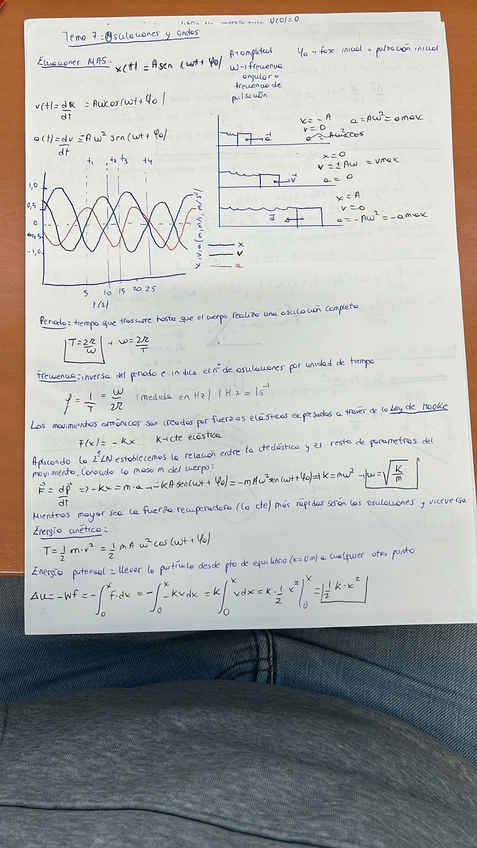 U(0)=0
Tema 7: Oscilaciones y ondas
Ecuaciones MAS: x(t) = A sen (ωt + φ0)
A = amplitud
ω → frecuencia
angular o
frecuencia de
pulsación
φ0 → fase inicial o pulsación inicial
v(t) = dx/dt = Aω cos(ωt + φ0)
a(t) = dv/dt = Aω² sen(ωt + φ0)
x = -A
v = 0
a = Aω² = amax
x = 0
v = ± Aω = vmax
a = 0
x = A
v = 0
a = -Aω² = -amax
t1 t2 t3 t4
1,0
0,5
0
-0,5
-1,0
5 10 15 20 25
t(s)
x, v, a (m, m/s, m/s²)
x
v
a
Periodo: tiempo que trascurre hasta que el cuerpo realiza una oscilación completa
T = 2π/ω → ω = 2π/T
Frecuencia: inversa del periodo e indica el nº de oscilaciones por unidad de tiempo
f = 1/T = ω/2π (medida en Hz) 1 Hz = 1s⁻¹
Los movimientos armónicos son creados por fuerzas elásticas expresadas a través de la Ley de Hooke
F(x) = -kx k → cte elástica
Aplicando la 2ª LN establecemos la relación entre la cte elástica y el resto de parámetros del
movimiento. Conocida la masa m del cuerpo:
F = dp/dt => -kx = m·a → -kA sen(ωt + φ0) = -mAω² sen(ωt + φ0) => k = mω² → ω = √k/m
Mientras mayor sea la fuerza recuperadora (la cte) más rápidas serán las oscilaciones y viceversa
Energía cinética:
T = 1/2 m·v² = 1/2 m A ω² cos(ωt + φ0)
Energía potencial = llevar la partícula desde pto de equilibrio (x=0m) a cualquier otro punto
Δu = -Wf = -∫₀ˣ F·dx = -∫₀ˣ -kx dx = k ∫₀ˣ x dx = k · 1/2 x² |₀ˣ = 1/2 k·x²